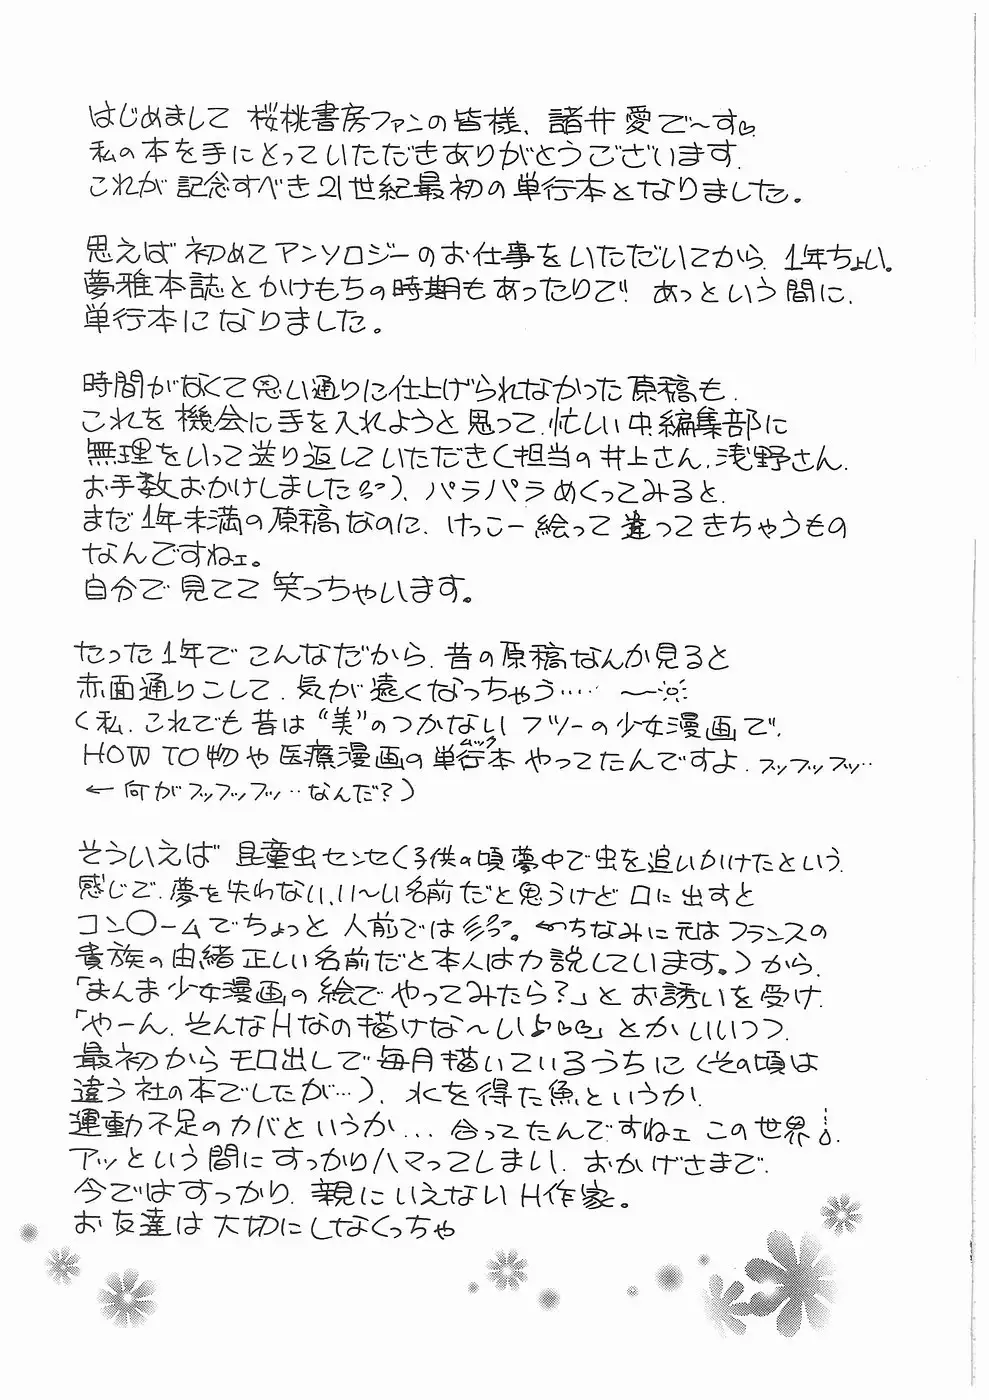 はじめまして 桜桃書房ファンの皆様、諸井愛で〜す♡
私の本を手にとっていただきありがとうございます。
これが記念すべき21世紀最初の単行本となりました。
思えば初めてアンソロジーのお仕事をいただいてから、1年ちょい。
夢雅本誌とかけもちの時期もあったりで! あっという間に、
単行本になりました。
時間がなくて思い通りに仕上げられなかった原稿も、
これを機会に手を入れようと思って、忙しい中、編集部に
無理をいって送り返していただき(担当の井上さん、浅野さん、
お手数おかけしました)、パラパラめくってみると、
まだ1年未満の原稿なのに、けっこー絵って違ってきちゃうもの
なんですねェ。
自分で見てて笑っちゃいます。
たった1年でこんなだから、昔の原稿なんか見ると
赤面通りこして、気が遠くなっちゃう……
(私、これでも昔は“美”のつかないフツーの少女漫画で、
HOW TO物や医療漫画の単行本ムックやってたんですよ、フッフッフッ…
←何がフッフッフッ…なんだ?)
そういえば 昆童虫センセ(子供の頃夢中で虫を追いかけたという、
感じで、夢を失わない、い〜い名前だと思うけど口に出すと
コン○ームでちょっと人前では。←ちなみに元はフランスの
貴族の由緒正しい名前だと本人は力説しています。)から、
「まんま少女漫画の絵でやってみたら?」とお誘いを受け、
「やーん、そんなHなの描けな〜い♪♡♡」とかいいつつ、
最初からモロ出しで毎月描いているうちに(その頃は
違う社の本でしたが…)、水を得た魚というか、
運動不足のカバというか…合ってたんですねェ この世界!。
アッという間にすっかりハマってしまい、おかげさまで、
今ではすっかり、親にいえないH作家。
お友達は大切にしなくっちゃ